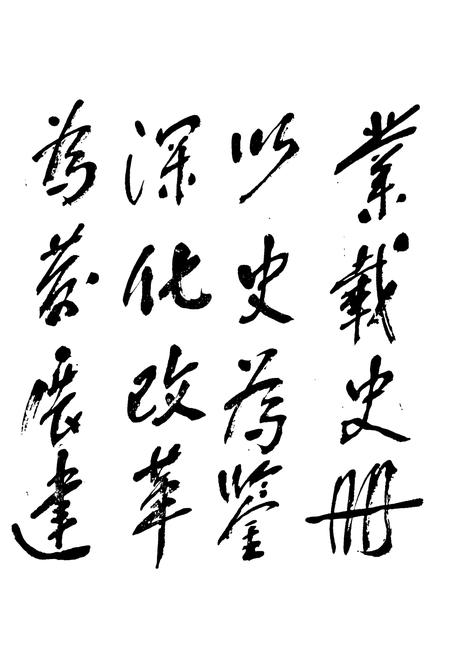 業載史册
以史為鑒
深化改革
為發展建